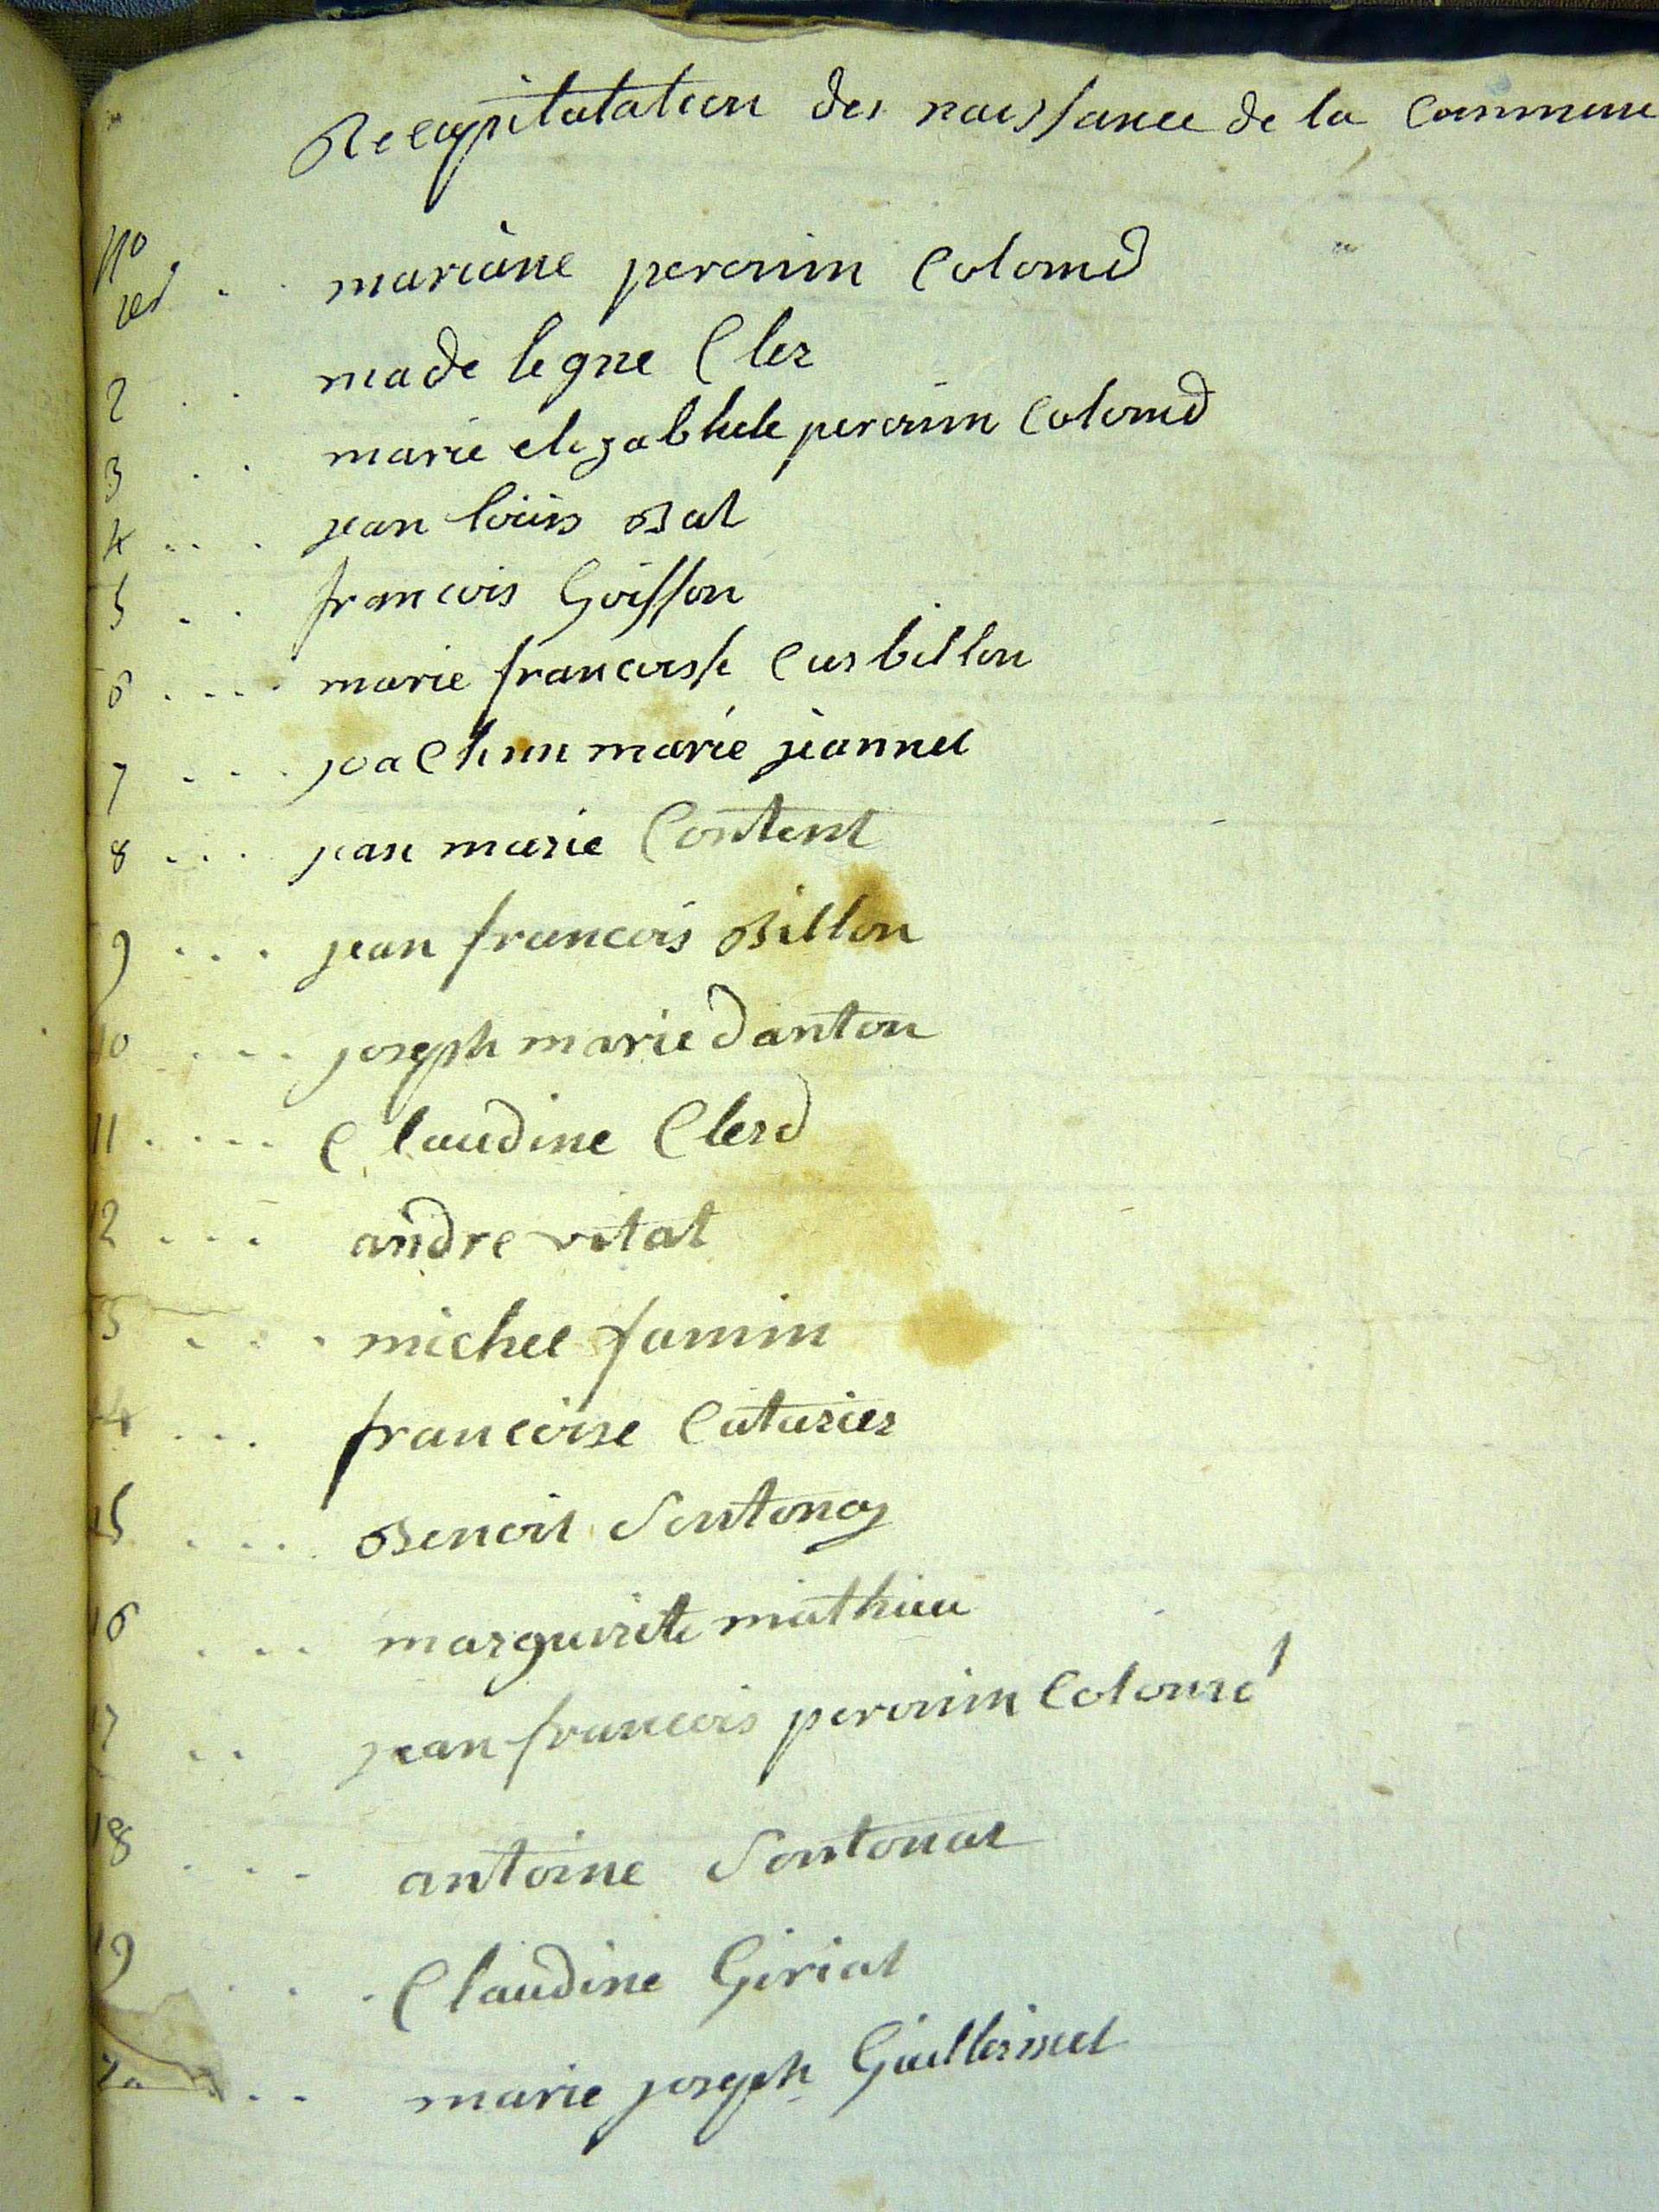 Recapitulation des naissance de la Commune
No
1er . . mariane perouin Colomd
2 . . made legne Cler
3 . . marie elizabhete perouin Colomd
4 . . . jean louis Bat
5 . . francois Goisson
6 . . . . marie francoisse Curbillon
7 . . . . joachim marie jeannet
8 . . . jean marie Content
9 . . . jean francois Billon
10 . . . joseph marie danton
11 . . . . Claudine Clerd
12 . . . andre vitat
13 . . . michel famin
14 . . . francoise Caturier
15 . . . . Benoit Sontonay
16 . . . marguirite mathieu
17 . . jean francois perouin Colomd
18 . . . antoine Sontonat
19 . . . Claudine Giriat
20 . . . marie joseph Guillermet